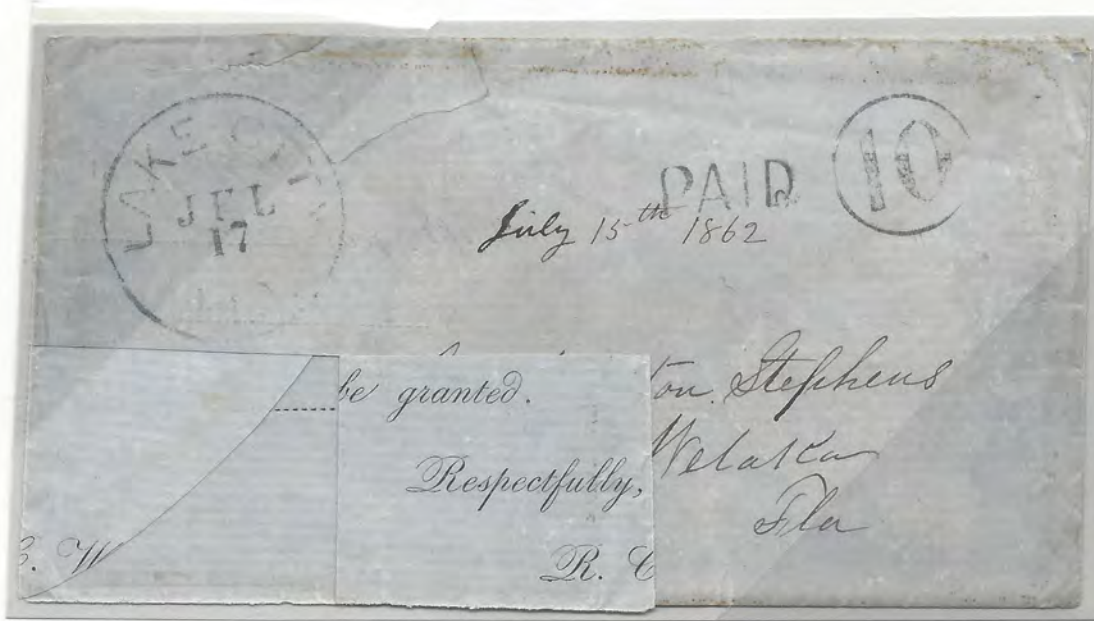 LAKE CITY
JUL
17
PAID 10
July 15th 1862
ton. Stephens
Welaka
Fla
be granted.
Respectfully,
R. C
C. W